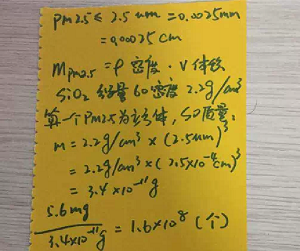 PM2.5 ≤ 2.5 um = 0.0025mm
= 0.00025 cm
MPM2.5 = ρ密度 · V体积
SiO2 分子量 60 密度 2.2g/cm³
算一个PM2.5为立方体，SO质量:
m = 2.2g/cm³ × (2.5um)³
= 2.2g/cm³ × (2.5×10⁻⁴cm)³
= 3.4×10⁻¹¹g
5.6mg / 3.4×10⁻¹¹g = 1.6×10⁸ (个)